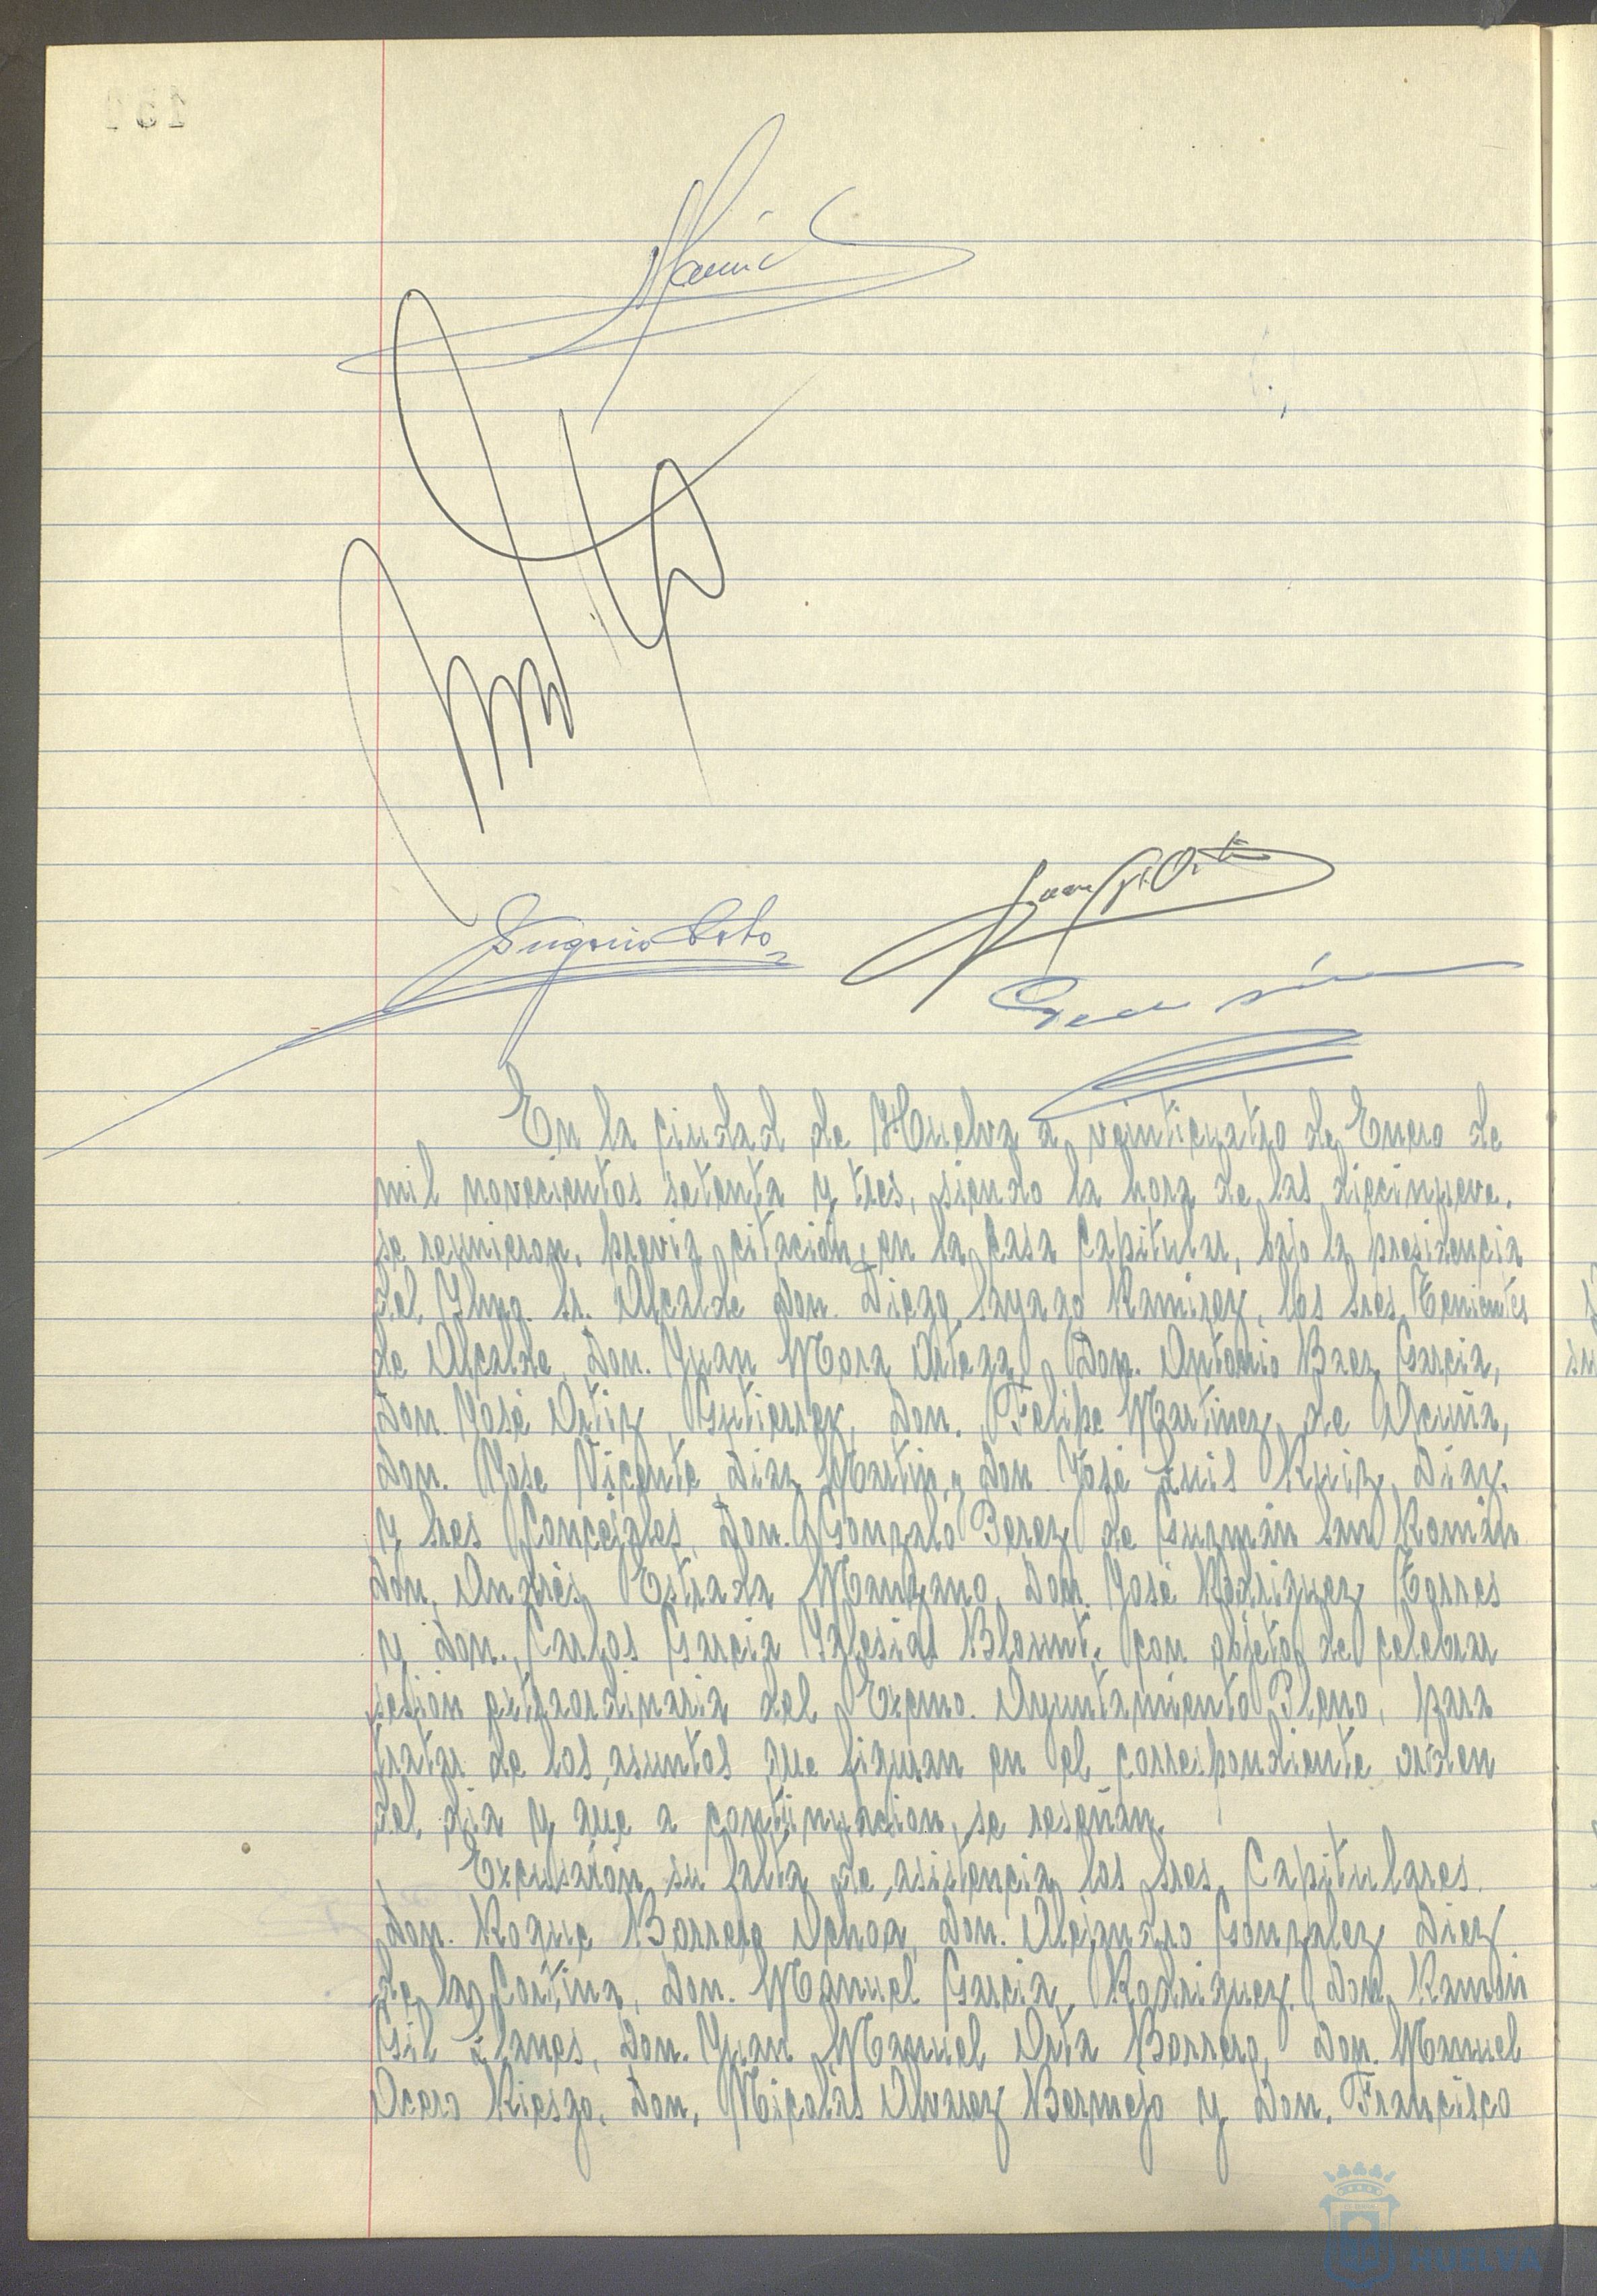 Eugenio Soto
En la ciudad de Huelva a veinticuatro de Enero de
mil novecientos setenta y tres, siendo la hora de las diecinueve,
se reunieron, previa citación, en la Casa Capitular, bajo la presidencia
del Ilmo. Sr. Alcalde Don. Diego Sayago Ramirez, los Sres. Tenientes
de Alcalde, Don. Juan Mora Ortega, Don. Antonio Baez Garcia,
Don José Ortiz Gutierrez, Don. Felipe Martinez de Acuña,
Don. Jose Vicente Diaz Martin y Don José Luis Ruiz Diaz,
y Sres Concejales, Don. Gonzalo Perez de Guzmán San Román
Don. Andrés Estrada Manzano, Don. José Rodriguez Torres
y Don. Carlos Garcia Yglesias Blount, con objeto de celebrar
sesión extraordinaria del Excmo. Ayuntamiento Pleno, para
tratar de los asuntos que figuran en el correspondiente orden
del dia y que a continuacion, se reseñan.
Excusarón su falta de asistencia los Sres. Capitulares
Don. Roque Borrero Ochoa, Don. Alejandro Gonzalez Diez
de la Cortina, Don. Manuel Garcia Rodriguez, Don. Ramón
Gil Llanes, Don. Juan Manuel Orta Borrero, Don. Manuel
Acero Riesgo, Don. Nicolás Alvarez Bermejo y Don. Francisco
HUELVA